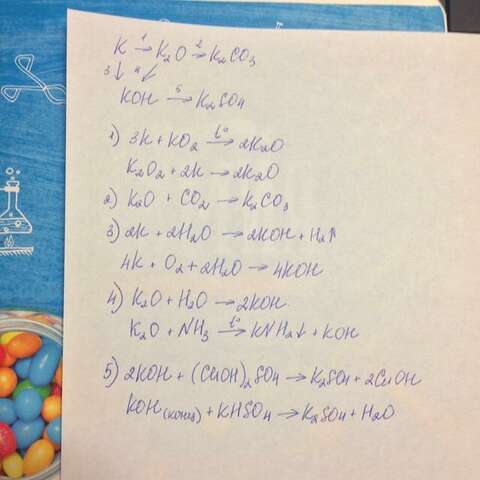 K →¹ K₂O →² K₂CO₃
3↓ 4↙
KOH →⁵ K₂SO₄
1) 3K + KO₂ →t° 2K₂O
K₂O₂ + 2K → 2K₂O
2) K₂O + CO₂ → K₂CO₃
3) 2K + 2H₂O → 2KOH + H₂↑
4K + O₂ + 2H₂O → 4KOH
4) K₂O + H₂O → 2KOH
K₂O + NH₃ →t° KNH₂↓ + KOH
5) 2KOH + (CuOH)₂SO₄ → K₂SO₄ + 2CuOH
KOH(конц) + KHSO₄ → K₂SO₄ + H₂O